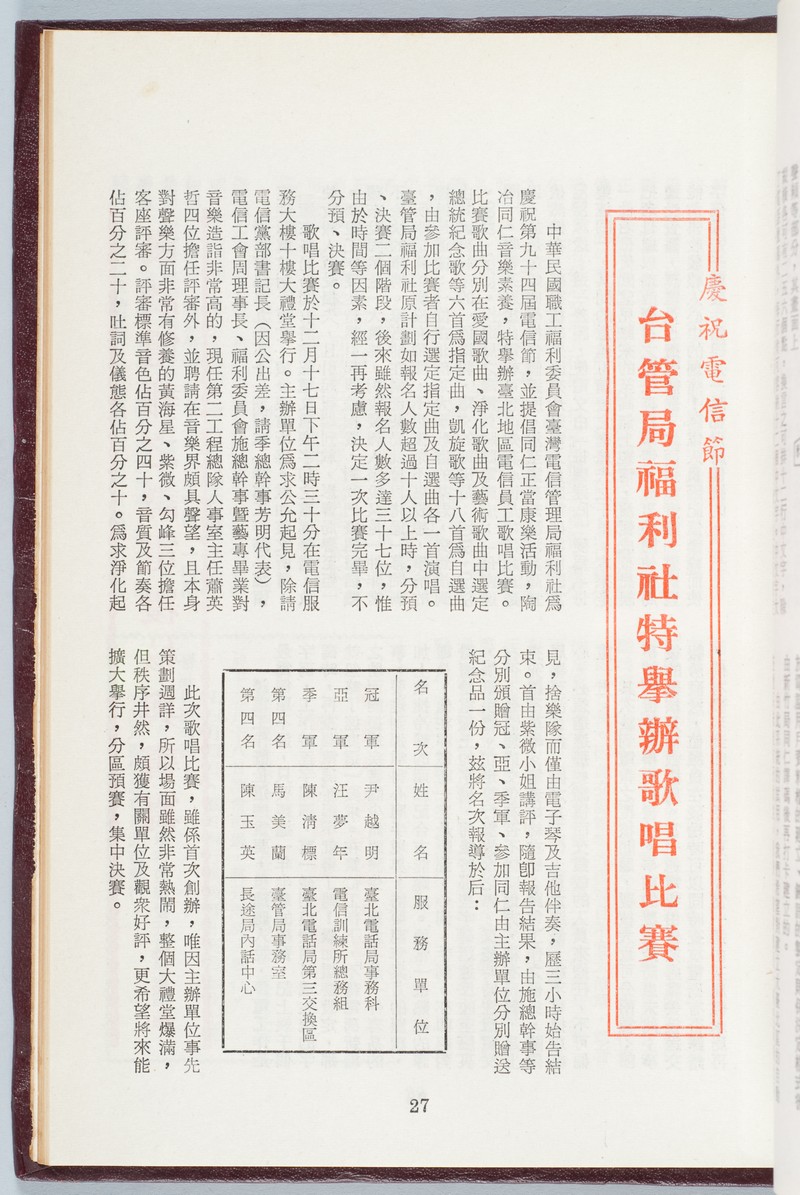 慶祝電信節
台管局福利社特舉辦歌唱比賽
中華民國職工福利委員會臺灣電信管理局福利社爲
慶祝第九十四屆電信節，並提倡同仁正當康樂活動，陶
冶同仁音樂素養，特舉辦臺北地區電信員工歌唱比賽。
比賽歌曲分別在愛國歌曲、淨化歌曲及藝術歌曲中選定
總統紀念歌等六首爲指定曲，凱旋歌等十八首爲自選曲
，由參加比賽者自行選定指定曲及自選曲各一首演唱。
臺管局福利社原計劃如報名人數超過十人以上時，分預
、決賽二個階段，後來雖然報名人數多達三十七位，惟
由於時間等因素，經一再考慮，決定一次比賽完畢，不
分預、決賽。
歌唱比賽於十二月十七日下午二時三十分在電信服
務大樓十樓大禮堂舉行。主辦單位爲求公允起見，除請
電信黨部書記長（因公出差，請季總幹事芳明代表），
電信工會周理事長、福利委員會施總幹事曁藝專畢業對
音樂造詣非常高的，現任第二工程總隊人事室主任蕭英
哲四位擔任評審外，並聘請在音樂界頗具聲望，且本身
對聲樂方面非常有修養的黃海星、紫微、勾峰三位擔任
客座評審。評審標準音色佔百分之四十，音質及節奏各
佔百分之二十，吐詞及儀態各佔百分之十。爲求淨化起
見，捨樂隊而僅由電子琴及吉他伴奏，歷三小時始告結
束。首由紫微小姐講評，隨卽報告結果，由施總幹事等
分別頒贈冠、亞、季軍、參加同仁由主辦單位分別贈送
紀念品一份，玆將名次報導於后：
名次 姓名 服務單位
冠軍 尹越明 臺北電話局事務科
亞軍 汪夢年 電信訓練所總務組
季軍 陳清標 臺北電話局第三交換區
第四名 馬美蘭 臺管局事務室
第四名 陳玉英 長途局內話中心
此次歌唱比賽，雖係首次創辦，唯因主辦單位事先
策劃週詳，所以場面雖然非常熱鬧，整個大禮堂爆滿，
但秩序井然，頗獲有關單位及觀衆好評，更希望將來能
擴大舉行，分區預賽，集中決賽。
27